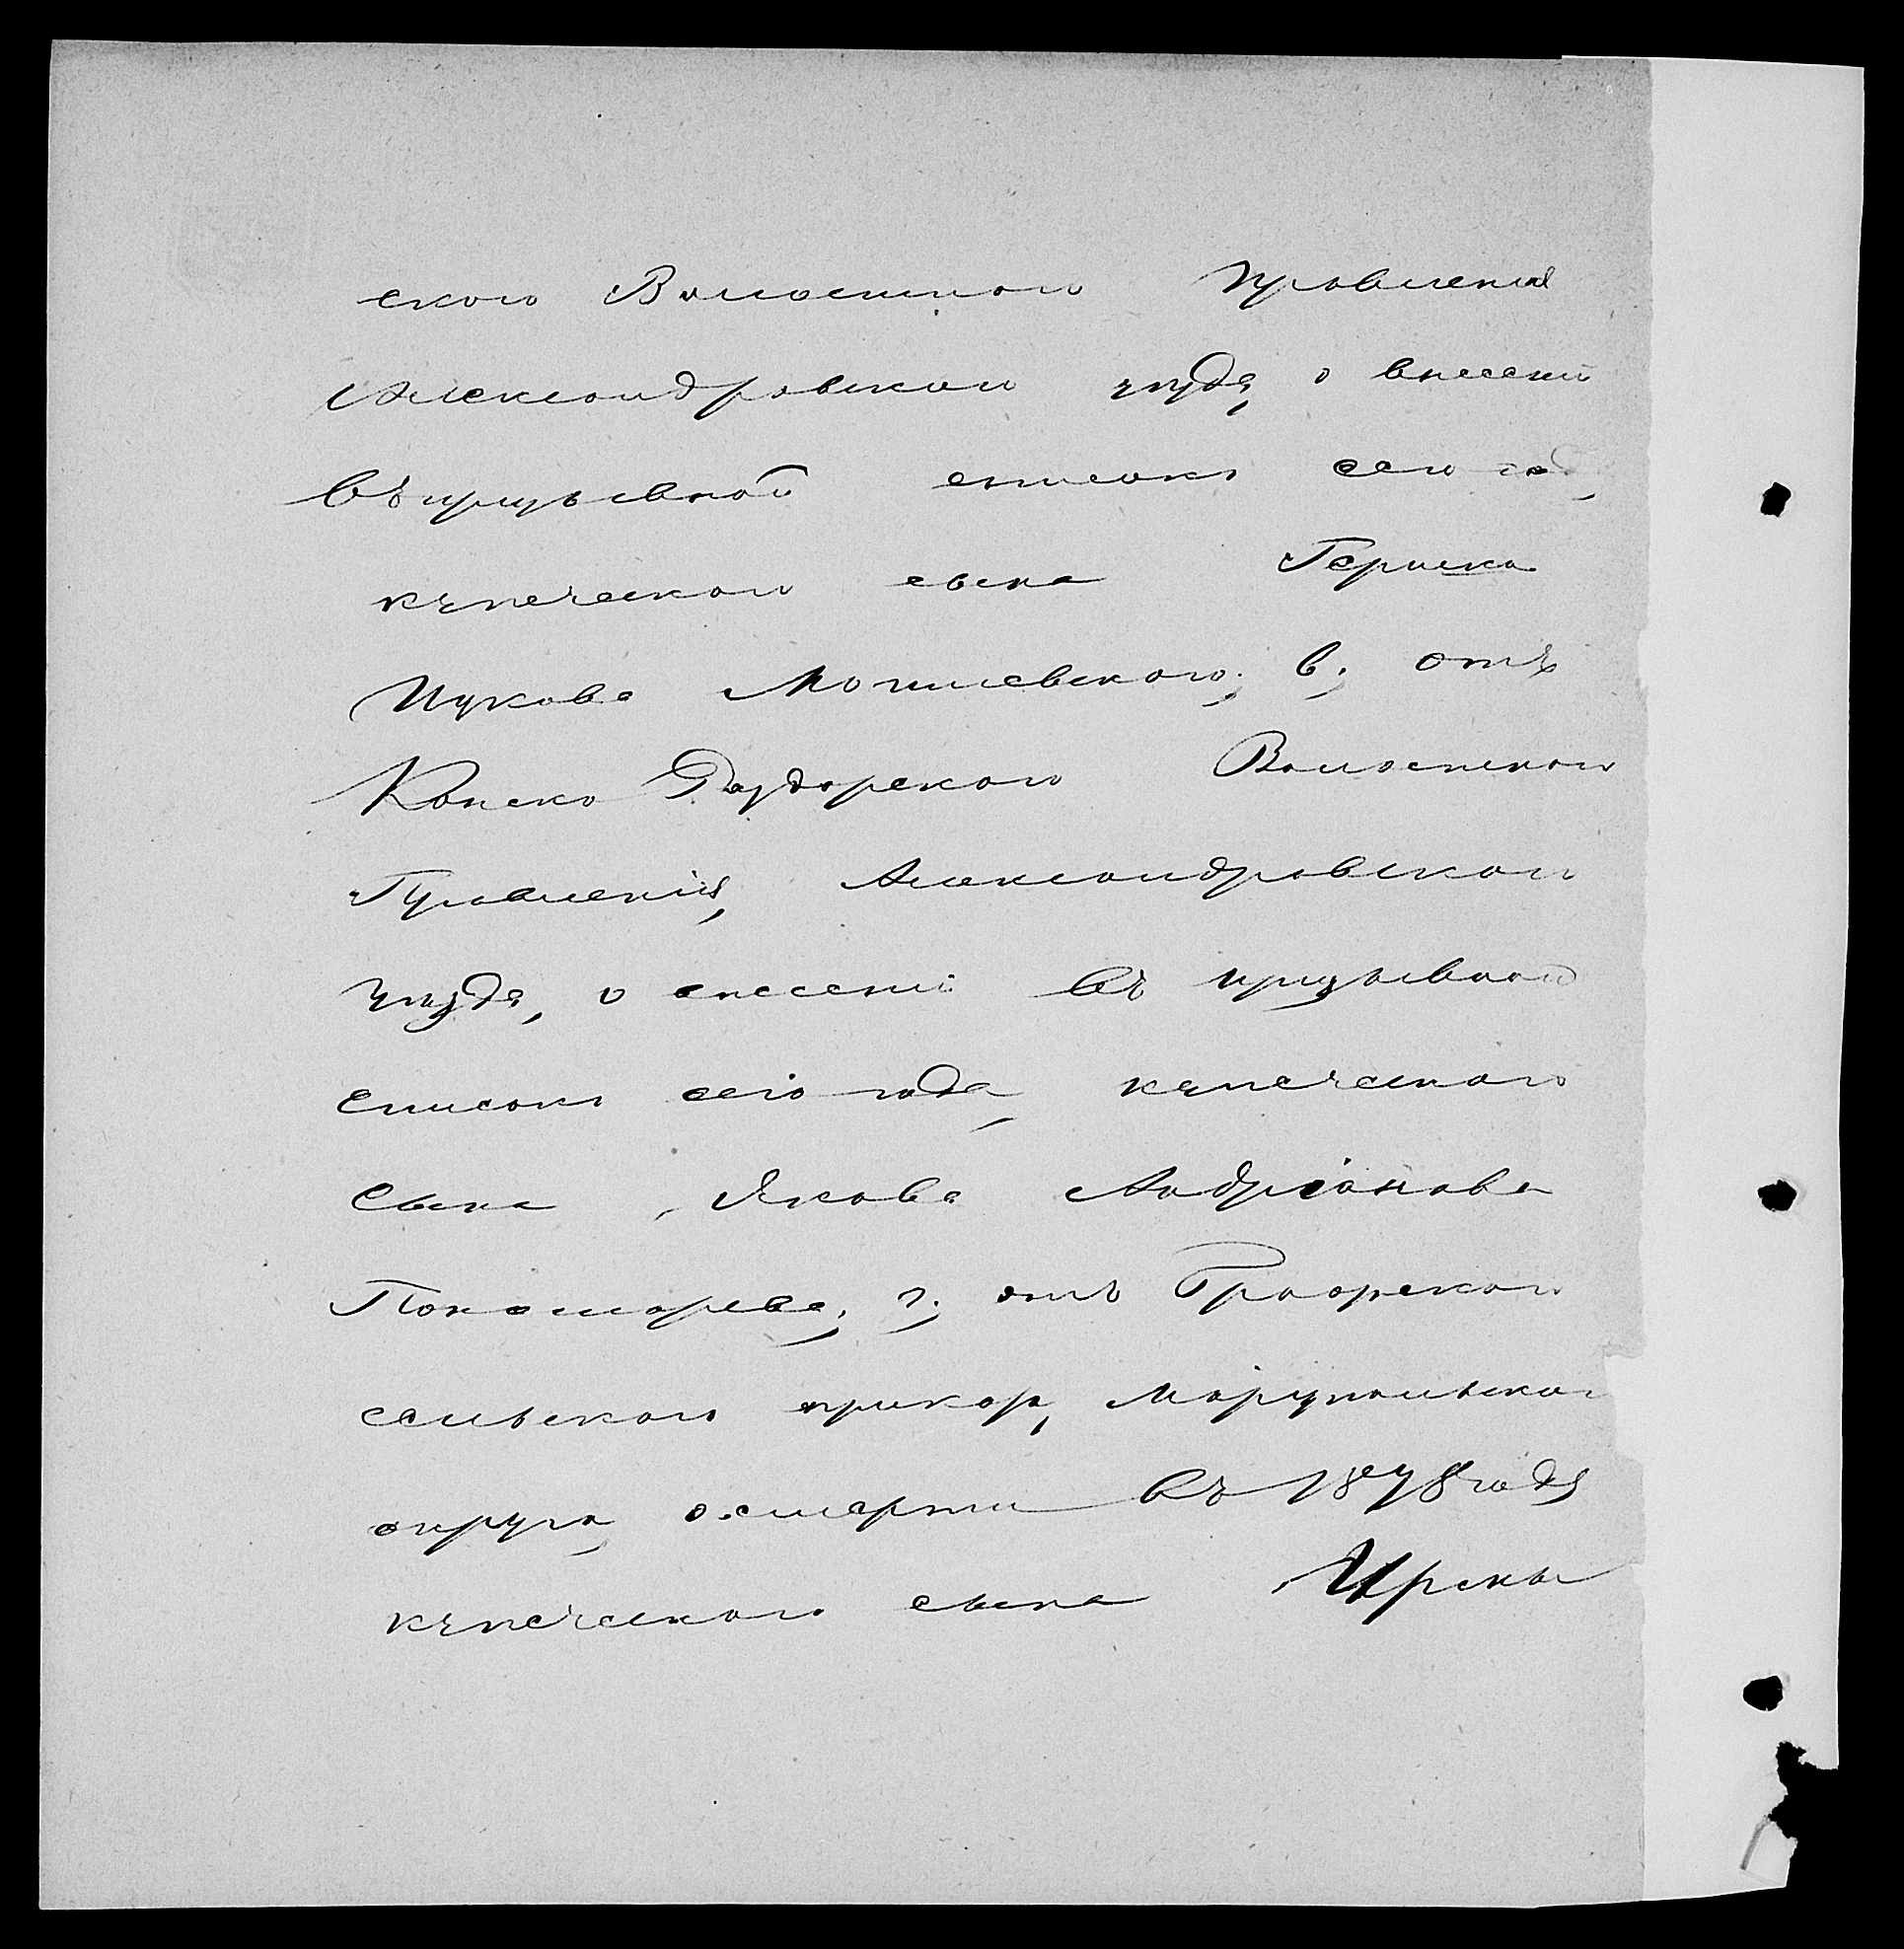 скаго Волостнаго Правленія
Александровскаго уѣзда, о внесеніи
въ призывной списокъ сего год,
купеческаго сына Гершка
Ицкова Могилевскаго; в, отъ
Конско Раздорскаго Волостнаго
Правленія, Александровскаго
уѣзда, о внесеніи въ призывной
списокъ сего года, купеческаго
сына Якова Андріанова
Пономарева; г, отъ
сельскаго приказа, Маріупольскаго
округа, о смерти въ 1878 году
купеческаго сына